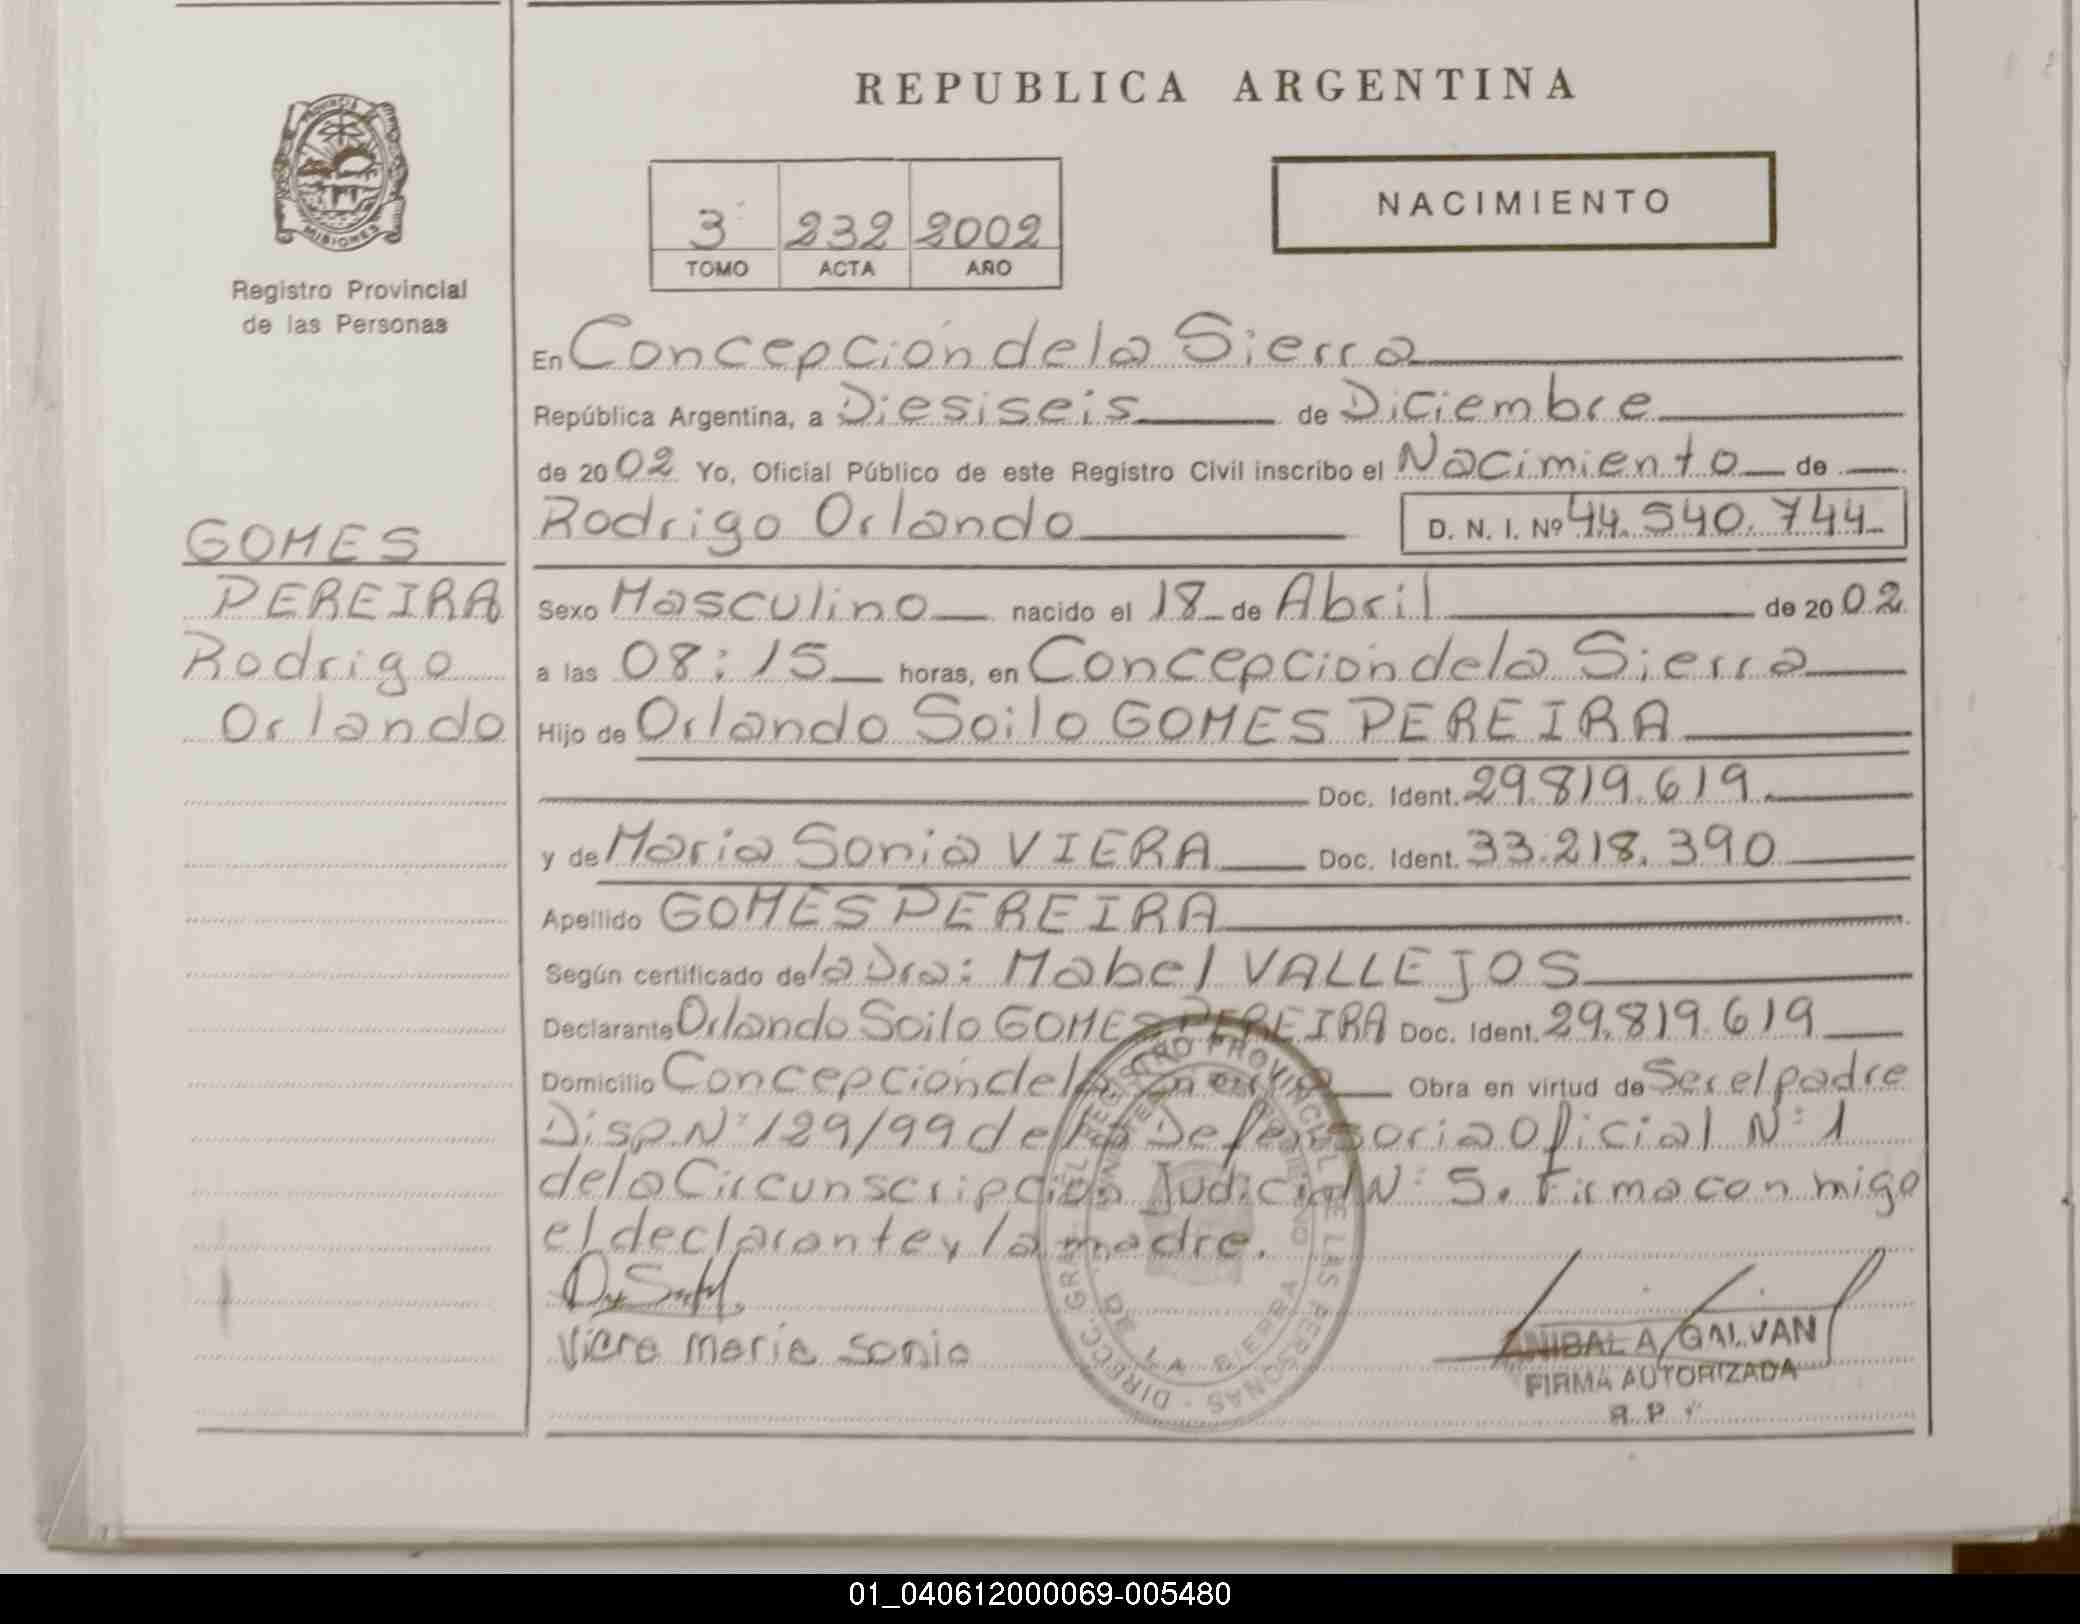 REPUBLICA ARGENTINA
PROVINCIA
MISIONES
Registro Provincial
de las Personas
3 232 2002
TOMO ACTA AÑO
NACIMIENTO
En Concepción de la Sierra
República Argentina, a Diesiseis de Diciembre
de 2002 Yo, Oficial Público de este Registro Civil inscribo el Nacimiento de
Rodrigo Orlando D. N. I. Nº 44.540.744
GOMES
PEREIRA
Rodrigo
Orlando
Sexo Masculino nacido el 18 de Abril de 2002
a las 08:15 horas, en Concepción de la Sierra
Hijo de Orlando Soilo GOMES PEREIRA
Doc. Ident. 29.819.619
y de Maria Sonia VIERA Doc. Ident. 33.218.390
Apellido GOMES PEREIRA
Según certificado de la Dra: Mabel VALLEJOS
Declarante Orlando Soilo GOMES PEREIRA Doc. Ident. 29.819.619
Domicilio Concepción de la Sierra Obra en virtud de Ser el padre
Disp. Nº 129/99 de la Defensoria Oficial Nº 1
de la Circunscripción Judicial Nº 5. Firma con migo
el declarante y la madre.
Viera maria sonia
DIRECC. GRAL. DEL REGISTRO PROVINCIAL DE LAS PERSONAS
DE LA SIERRA
ANIBAL A. GALVAN
FIRMA AUTORIZADA
R. P.
01_040612000069-005480